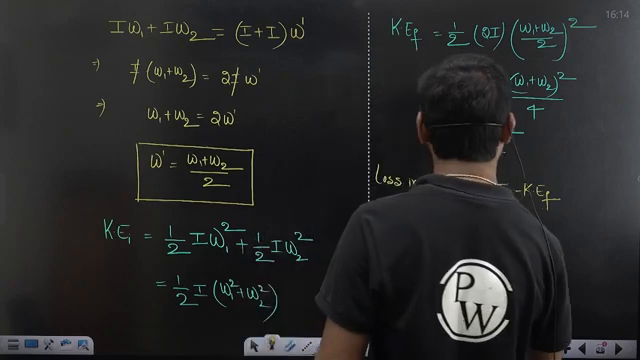 Iω₁ + Iω₂ = (I+I)ω'
⇒ I(ω₁+ω₂) = 2Iω'
⇒ ω₁+ω₂ = 2ω'
ω' = (ω₁+ω₂)/2
KE₁ = 1/2 Iω₁² + 1/2 Iω₂²
= 1/2 I(ω₁²+ω₂²)
16:14
K·E_f = 1/2 (2I) ((ω₁+ω₂)/2)²
ω₁+ω₂)² / 4
Loss in
- K·E_f
PW